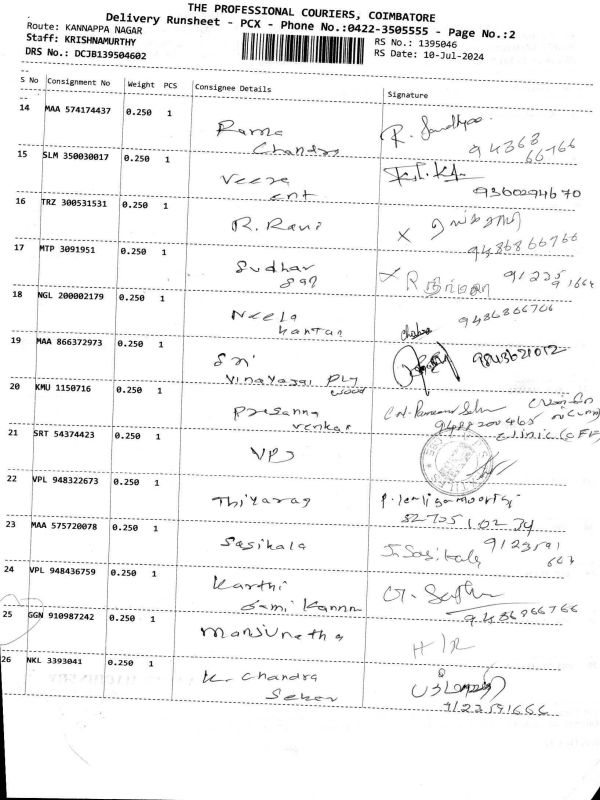 THE PROFESSIONAL COURIERS, COIMBATORE
Delivery Runsheet - PCX - Phone No.:0422-3505555 - Page No.:2
Route: KANNAPPA NAGAR
Staff: KRISHNAMURTHY
DRS No.: DCJB139504602
RS No.: 1395046
RS Date: 10-Jul-2024
S No Consignment No Weight PCS Consignee Details Signature
14 MAA 574174437 0.250 1
Rama
Chandra
R. Sandhya
94868
66766
15 SLM 350030017 0.250 1
Veera
ent
9360294670
16 TRZ 300531531 0.250 1
R. Rani
9486866766
17 MTP 3091951 0.250 1
Sudhar
san
91235
91666
18 NGL 200002179 0.250 1
Neela
kantan
9486866766
19 MAA 866372973 0.250 1
Sri
Vinayagai Ply
wood
9843621012
20 KMU 1150716 0.250 1
Prasanna
venkat
9488200465
clinic (OFF)
21 SRT 54374423 0.250 1
VPS
22 VPL 948322673 0.250 1
Thiyarag
23 MAA 575720078 0.250 1
Sasikala
J. Sasikala
9123591
666
24 VPL 948436759 0.250 1
Karthi
Sami Kannu
9486866766
25 GGN 910987242 0.250 1
Manjunatha
H/R
26 NKL 3393041 0.250 1
K. Chandra
Seker
9123591666